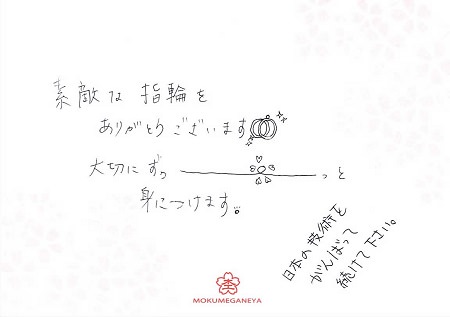 素敵な指輪を
ありがとうございます
大切にずっ──────っと
身につけます。
日本の技術を
がんばって
続けて下さい。
MOKUMEGANEYA